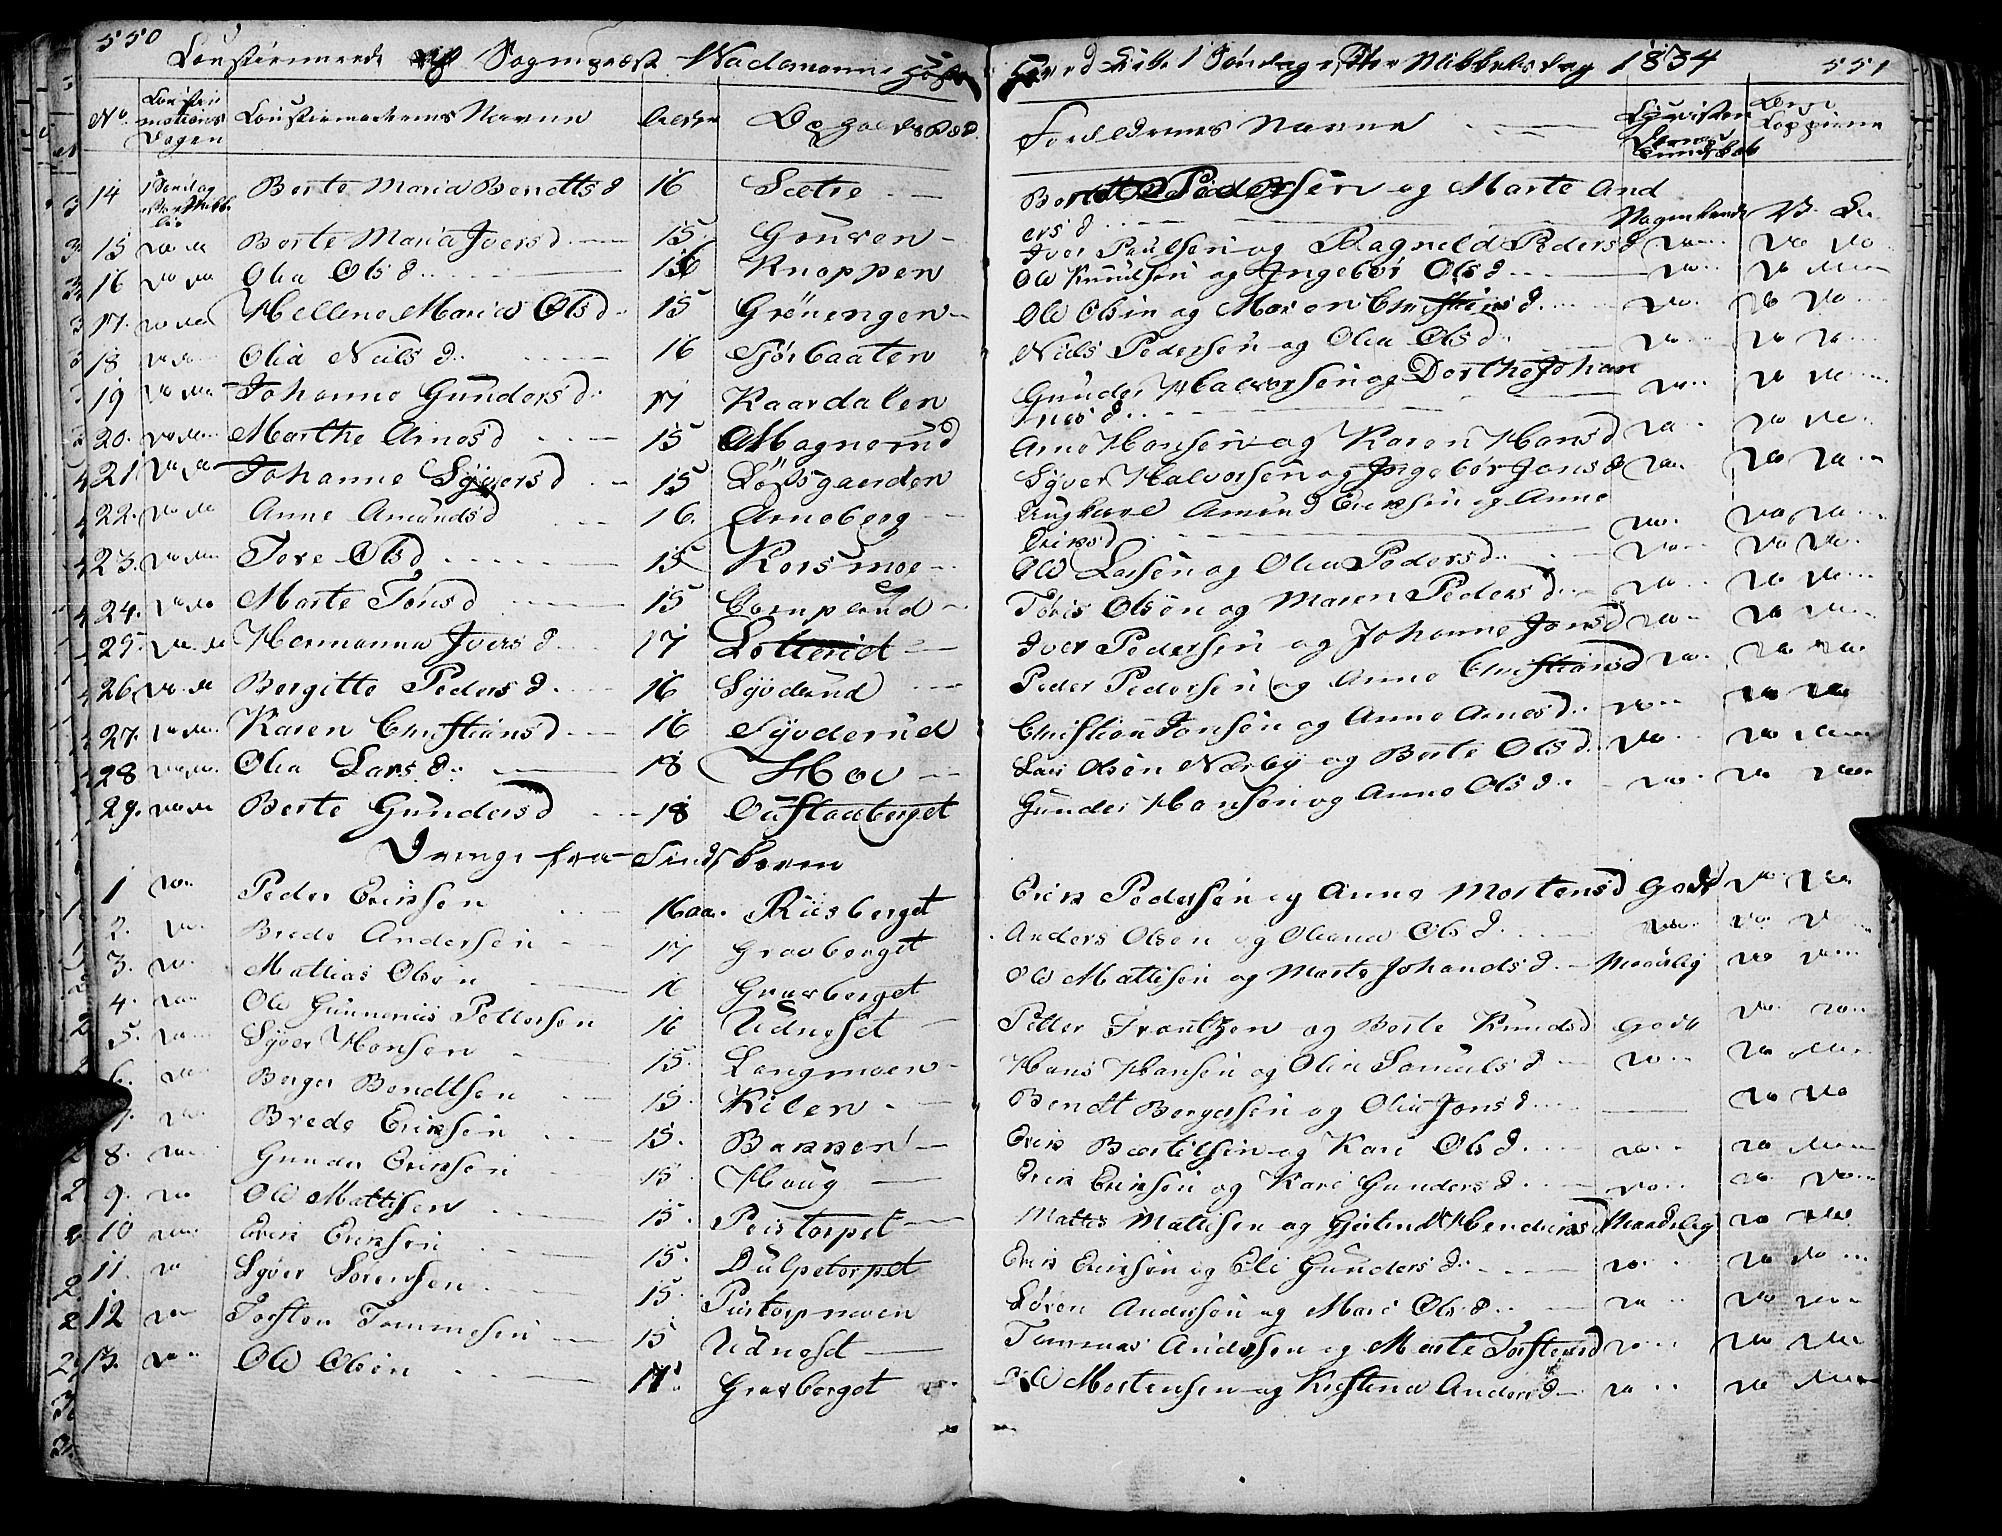 550
Confirmerede af Sognepræst Wademanns
N° Confirmations Dagen Confirmandernes Navne Alder Opholdssted
14 1 Søndag Berte Maria Bendtsd 16 Sætre
15 do do Berte Maria Iversd 15 Gruven
16 do do Olia Olsd 16 Knappen
17. do do Hellene Maria Olsd 15 Grönengen
18 do do Olia Nielsd. 16 Siörbaaten
19 do do Johanne Gundersd. 17 Kaardalen
20. do do Marthe Arnesd 15 Magnerud
21 do do Johanne Syversd 15 Lövsgaarden
22. do do Anne Amundsd 16. Arneberg
23. do do Tore Olsd 15 Korsmoe
24. do do Marte Tönsd 15
25. do do Hermanna Iversd 17 Lotterud
26 do do Bergitte Pedersd. 16 Syvdund
27. do do Karen Christiansd 16 Syvderud
28 do do Olia Larsd. 18 Hov
29. do do Berte Gundersd 18 Oustadberget
Drenge fra Findskoven
1 do Peder Eriksen 16 aar Riisberget
2. do Brede Andersen 17 Gravberget
3. do Mattias Olsen 16 Gravberget
4. do Ole Gunnerius Pettersen 16 Udneset
5. do Syver Hansen 15. Langmoen
6. do Berger Bendtsen 15. Kilen
7. do Brede Eriksen 15. Bakken
8. do Gunder Eriksen 15. Haug
9. do Ole Mattisen 15. Peistorpet
10 do Erik Eriksen 15. Dulpetorpet
11. do Syver Sörensen 15. Pistorpmoen
12 do Torsten Tommesen 15 Udneset
13. do Ole Olsen 17. Gravberget
Kirke 1 Søndag efter Mikkelsdag 1834 551
Forældrenes Navne Christendoms Kundskab Kopperne
Bendt Pedersen og Marte And
ersd. Nogenlunde
Iver Paulsen og Ragneld Pedersd do do do
Ole Knudsen og Ingebör Olsd do do do
Ole Olsen og Maren Christiansd. do do do
Niels Pedersen og Olia Olsd do do do
Gunder Halvorsen og Dorthe Johan
nesd. do do do
Arne Hansen og Karen Hansd do do do
Syver Halvorsen og Ingebör Jonsd do do do
Ungkarl Amund Eriksen og Anne
Eriksd do do do
Ole Larsen og Olia Pedersd. do do do
Tönis Olsen og Maren Pedersd. do do do
Iver Pedersen og Johanne Jonsd do do do
Peder Pedersen og Anne Christiansd do do do
Christian Jonsen og Anne Arnesd. do do do
Lars Olsen Nærby og Berte Olsd. do do do
Gunder Hansen og Anne Olsd. do do do
Erik Pedersen og Anne Mortensd Godt do do
Anders Olsen og Oliana Olsd. do do do
Ole Mattisen og Marte Johansd. Maadelig do do
Petter Frantzen og Berte Knudsd Godt do do
Hans Hansen og Olia Samuelsd do do do
Bendt Bergersen og Olia Jonsd. do do
Erik Bertelsen og Kari Olsd. do do do
Erik Eriksen og Kari Gundersd. do do do
Mattis Mattisen og Gjertrud Hendriksd Maadelig do do
Erik Eriksen og Eli Gundersd. do do do
Sören Andersen og Mari Olsd. do do do
Tommas Andersen og Marte Torstensd do do do
Ole Mortensen og Kirstena Andersd do do do